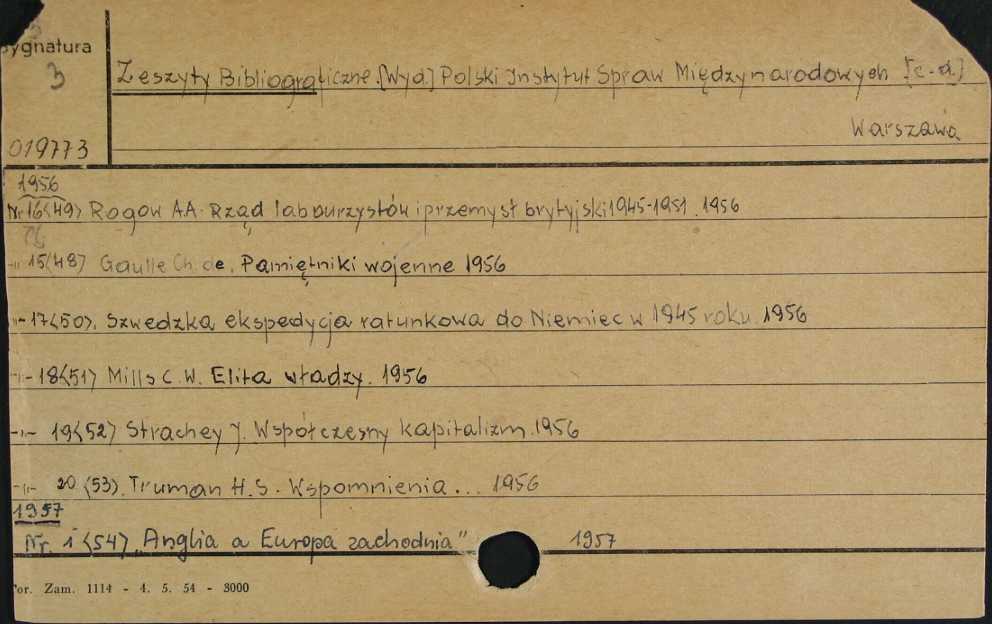 Sygnatura
3
Zeszyty Bibliograficzne. [Wyd.] Polski Instytut Spraw Międzynarodowych [c.d.]
Warszawa
019773
1956
Nr 16<49> Rogow A.A. Rząd labourzystów i przemysł brytyjski 1945-1951. 1956
-"- 15<48> Gaulle Ch. de. Pamiętniki wojenne 1956
-"- 17<50>. Szwedzka ekspedycja ratunkowa do Niemiec w 1945 roku. 1956
-"- 18<51> Mills C. W. Elita władzy. 1956
-"- 19<52> Strachey J. Współczesny kapitalizm. 1956
-"- 20 <53>. Truman H. S. Wspomnienia... 1956
1957
Nr. 1 <54> „Anglia a Europa zachodnia” 1957
Tor. Zam. 1114 - 4. 5. 54 - 3000